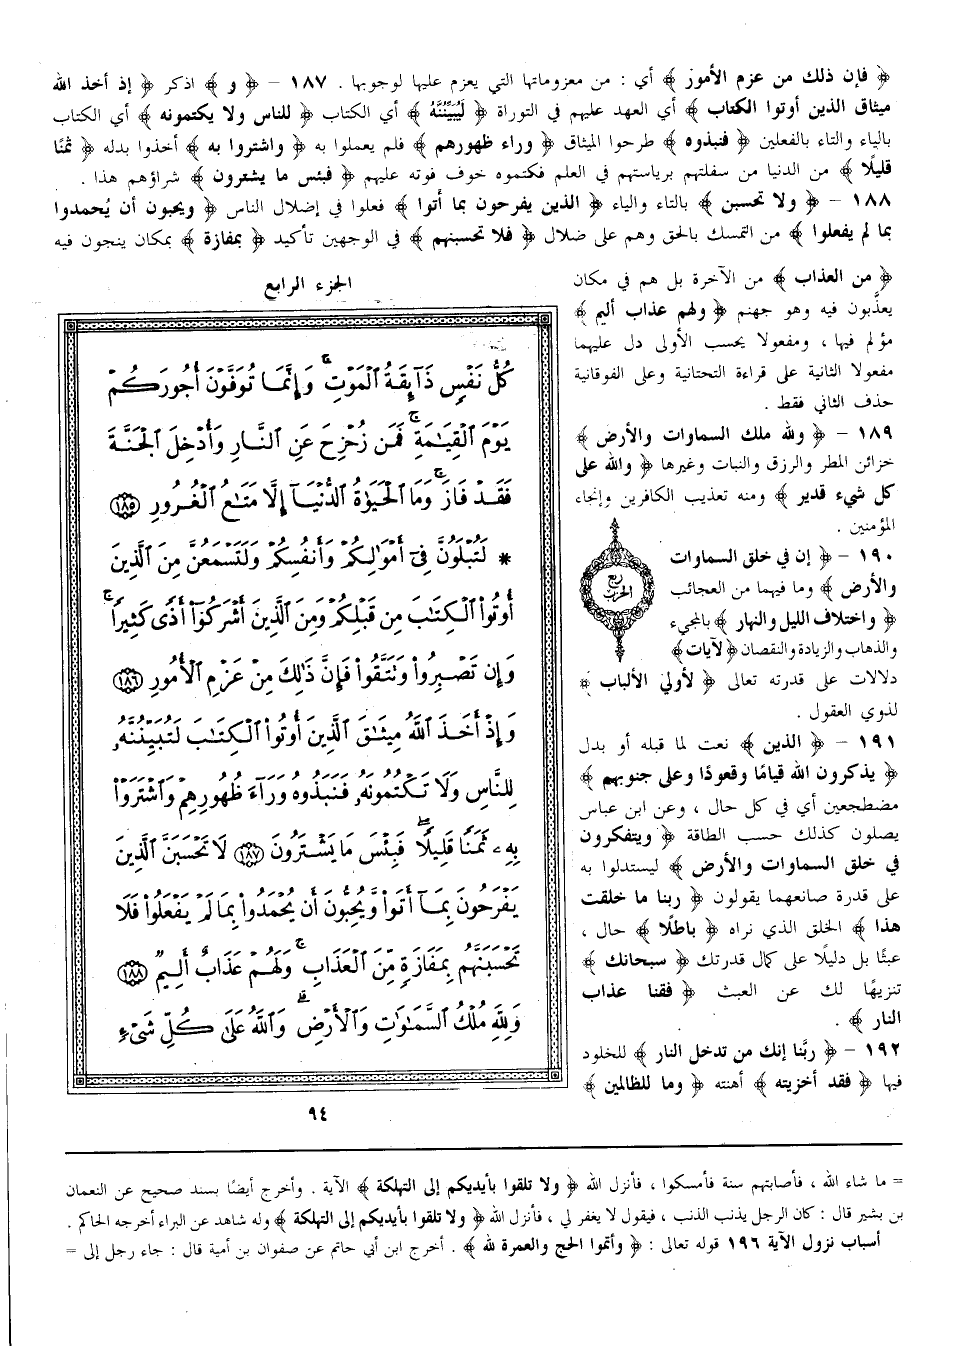 ﴿ فإن ذلك من عزم الأمور ﴾ أي : من معزوماتها التي يعزم عليها لوجوبها . ١٨٧ - ﴿ و ﴾ اذكر ﴿ إذ أخذ الله
ميثاق الذين أوتوا الكتاب ﴾ أي العهد عليهم في التوراة ﴿ لَيُبَيِّنُنَّهُ ﴾ أي الكتاب ﴿ للناس ولا يكتمونه ﴾ أي الكتاب
بالياء والتاء بالفعلين ﴿ فنبذوه ﴾ طرحوا الميثاق ﴿ وراء ظهورهم ﴾ فلم يعملوا به ﴿ واشتروا به ﴾ أخذوا بدله ﴿ ثمنًا
قليلًا ﴾ من الدنيا من سفلتهم برياستهم في العلم فكتموه خوف فوته عليهم ﴿ فبئس ما يشترون ﴾ شراؤهم هذا .
١٨٨ - ﴿ ولا تحسبن ﴾ بالتاء والياء ﴿ الذين يفرحون بما أتوا ﴾ فعلوا في إضلال الناس ﴿ ويحبون أن يُحمدوا
بما لم يفعلوا ﴾ من التمسك بالحق وهم على ضلال ﴿ فلا تحسبنهم ﴾ في الوجهين تأكيد ﴿ بمفازة ﴾ بمكان ينجون فيه
﴿ من العذاب ﴾ من الآخرة بل هم في مكان
يعذَّبون فيه وهو جهنم ﴿ ولهم عذاب أليم ﴾
مؤلم فيها ، ومفعولا يحسب الأولى دل عليهما
مفعولا الثانية على قراءة التحتانية وعلى الفوقانية
حذف الثاني فقط .
١٨٩ - ﴿ ولله ملك السماوات والأرض ﴾
خزائن المطر والرزق والنبات وغيرها ﴿ والله على
كل شيء قدير ﴾ ومنه تعذيب الكافرين وإنجاء
المؤمنين .
١٩٠ - ﴿ إن في خلق السماوات
والأرض ﴾ وما فيهما من العجائب
﴿ واختلاف الليل والنهار ﴾ بالمجيء
والذهاب والزيادة والنقصان ﴿ لآيات ﴾
دلالات على قدرته تعالى ﴿ لأولي الألباب ﴾
لذوي العقول .
١٩١ - ﴿ الذين ﴾ نعت لما قبله أو بدل
﴿ يذكرون الله قيامًا وقعودًا وعلى جنوبهم ﴾
مضطجعين أي في كل حال ، وعن ابن عباس
يصلون كذلك حسب الطاقة ﴿ ويتفكرون
في خلق السماوات والأرض ﴾ ليستدلوا به
على قدرة صانعهما يقولون ﴿ ربنا ما خلقت
هذا ﴾ الخلق الذي نراه ﴿ باطلًا ﴾ حال ،
عبثًا بل دليلًا على كمال قدرتك ﴿ سبحانك ﴾
تنزيهًا لك عن العبث ﴿ فقنا عذاب
النار ﴾ .
١٩٢ - ﴿ ربَّنا إنك من تدخل النار ﴾ للخلود
فيها ﴿ فقد أخزيته ﴾ أهنته ﴿ وما للظالمين ﴾
ربع
الحزب
الجزء الرابع
كُلُّ نَفْسٍ ذَآئِقَةُ ٱلْمَوْتِ ۗ وَإِنَّمَا تُوَفَّوْنَ أُجُورَكُمْ
يَوْمَ ٱلْقِيَـٰمَةِ ۖ فَمَن زُحْزِحَ عَنِ ٱلنَّارِ وَأُدْخِلَ ٱلْجَنَّةَ
فَقَدْ فَازَ ۗ وَمَا ٱلْحَيَوٰةُ ٱلدُّنْيَآ إِلَّا مَتَـٰعُ ٱلْغُرُورِ ١٨٥
* لَتُبْلَوُنَّ فِىٓ أَمْوَٰلِكُمْ وَأَنفُسِكُمْ وَلَتَسْمَعُنَّ مِنَ ٱلَّذِينَ
أُوتُوا۟ ٱلْكِتَـٰبَ مِن قَبْلِكُمْ وَمِنَ ٱلَّذِينَ أَشْرَكُوٓا۟ أَذًى كَثِيرًا ۚ
وَإِن تَصْبِرُوا۟ وَتَتَّقُوا۟ فَإِنَّ ذَٰلِكَ مِنْ عَزْمِ ٱلْأُمُورِ ١٨٦
وَإِذْ أَخَذَ ٱللَّهُ مِيثَـٰقَ ٱلَّذِينَ أُوتُوا۟ ٱلْكِتَـٰبَ لَتُبَيِّنُنَّهُۥ
لِلنَّاسِ وَلَا تَكْتُمُونَهُۥ فَنَبَذُوهُ وَرَآءَ ظُهُورِهِمْ وَٱشْتَرَوْا۟
بِهِۦ ثَمَنًا قَلِيلًا ۖ فَبِئْسَ مَا يَشْتَرُونَ ١٨٧ لَا تَحْسَبَنَّ ٱلَّذِينَ
يَفْرَحُونَ بِمَآ أَتَوا۟ وَّيُحِبُّونَ أَن يُحْمَدُوا۟ بِمَا لَمْ يَفْعَلُوا۟ فَلَا
تَحْسَبَنَّهُم بِمَفَازَةٍ مِّنَ ٱلْعَذَابِ ۖ وَلَهُمْ عَذَابٌ أَلِيمٌ ١٨٨
وَلِلَّهِ مُلْكُ ٱلسَّمَـٰوَٰتِ وَٱلْأَرْضِ ۗ وَٱللَّهُ عَلَىٰ كُلِّ شَىْءٍ
٩٤
= ما شاء الله ، فأصابتهم سنة فأمسكوا ، فأنزل الله ﴿ ولا تلقوا بأيديكم إلى التهلكة ﴾ الآية . وأخرج أيضًا بسند صحيح عن النعمان
بن بشير قال : كان الرجل يذنب الذنب ، فيقول لا يغفر لي ، فأنزل الله ﴿ ولا تلقوا بأيديكم إلى التهلكة ﴾ وله شاهد عن البراء أخرجه الحاكم .
أسباب نزول الآية ١٩٦ قوله تعالى : ﴿ وأتموا الحج والعمرة لله ﴾ . أخرج ابن أبي حاتم عن صفوان بن أمية قال : جاء رجل إلى =